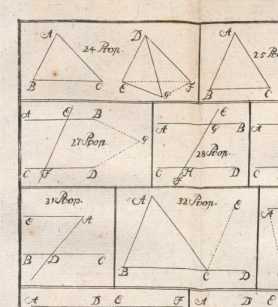 A D A
24 Prop. 25 Pro
B C E G F B C
A E B G
27 Prop.
C F D
A E G B A
28 Prop.
C H D C
F
31 Prop. A 32 Prop. E
E A
B D C
B C D
A B E F A D E